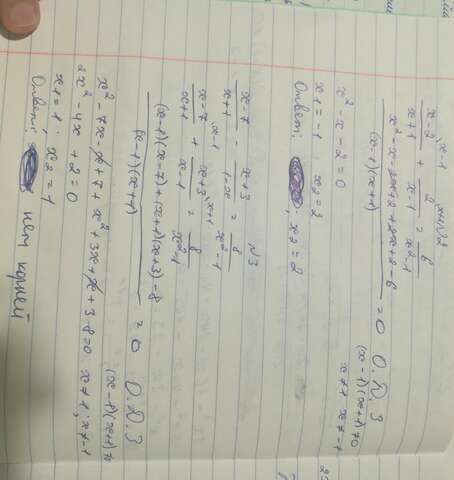 x-1 x+1 N2
x-2/x+1 + 2/x-1 = 6/x²-1
x²-x-2x+2+2x+2-6/(x-1)(x+1) = 0 О.Д.З
(x-1)(x+1)≠0
x≠1 x≠-1
x²-x-2=0
x1=-1, x2=2
Ответ: ; x2=2
N3
x-7/x+1 - x+3/1-x = 8/x²-1
x-1 x+1
x-7/x+1 + x+3/x-1 = 8/x²-1
(x-1)(x-7)+(x+1)(x+3)-8/(x-1)(x+1) = 0 О.Д.З
(x-1)(x+1)≠
x²-7x-x+7+x²+3x+x+3-8=0 x≠1; x≠-1
2x²-4x+2=0
x1=1; x2=1
Ответ: нет корней